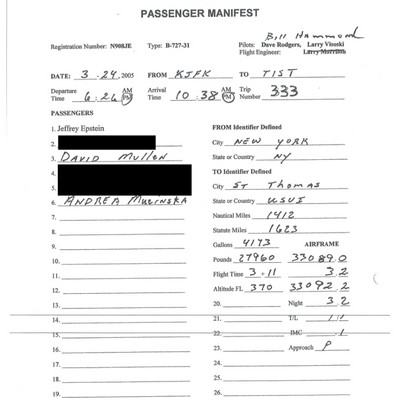 PASSENGER MANIFEST
Bill Hammond
Registration Number: N908JE Type: B-727-31 Pilots: Dave Rodgers, Larry Visoski
Flight Engineer: Larry Morrison
DATE: 3-24, 2005 FROM KJFK TO TIST
Departure Time 6:26 AM PM Arrival Time 10:38 AM PM Trip Number 333
PASSENGERS
1. Jeffrey Epstein
2.
3. David Mullen
4.
5.
6. ANDREA
7.
8.
9.
10.
11.
12.
13.
14.
15.
16.
17.
18.
19.
FROM Identifier Defined
City NEW YORK
State or Country NY
TO Identifier Defined
City ST Thomas
State or Country USVI
Nautical Miles 1412
Statute Miles 1623
Gallons 4173 AIRFRAME
Pounds 27960 33089.0
Flight Time 3+11 3.2
Altitude FL 370 33092.2
20. Night 3.2
21. T/L 1/1
22. IMC .1
23. Approach P
24.
25.
26.